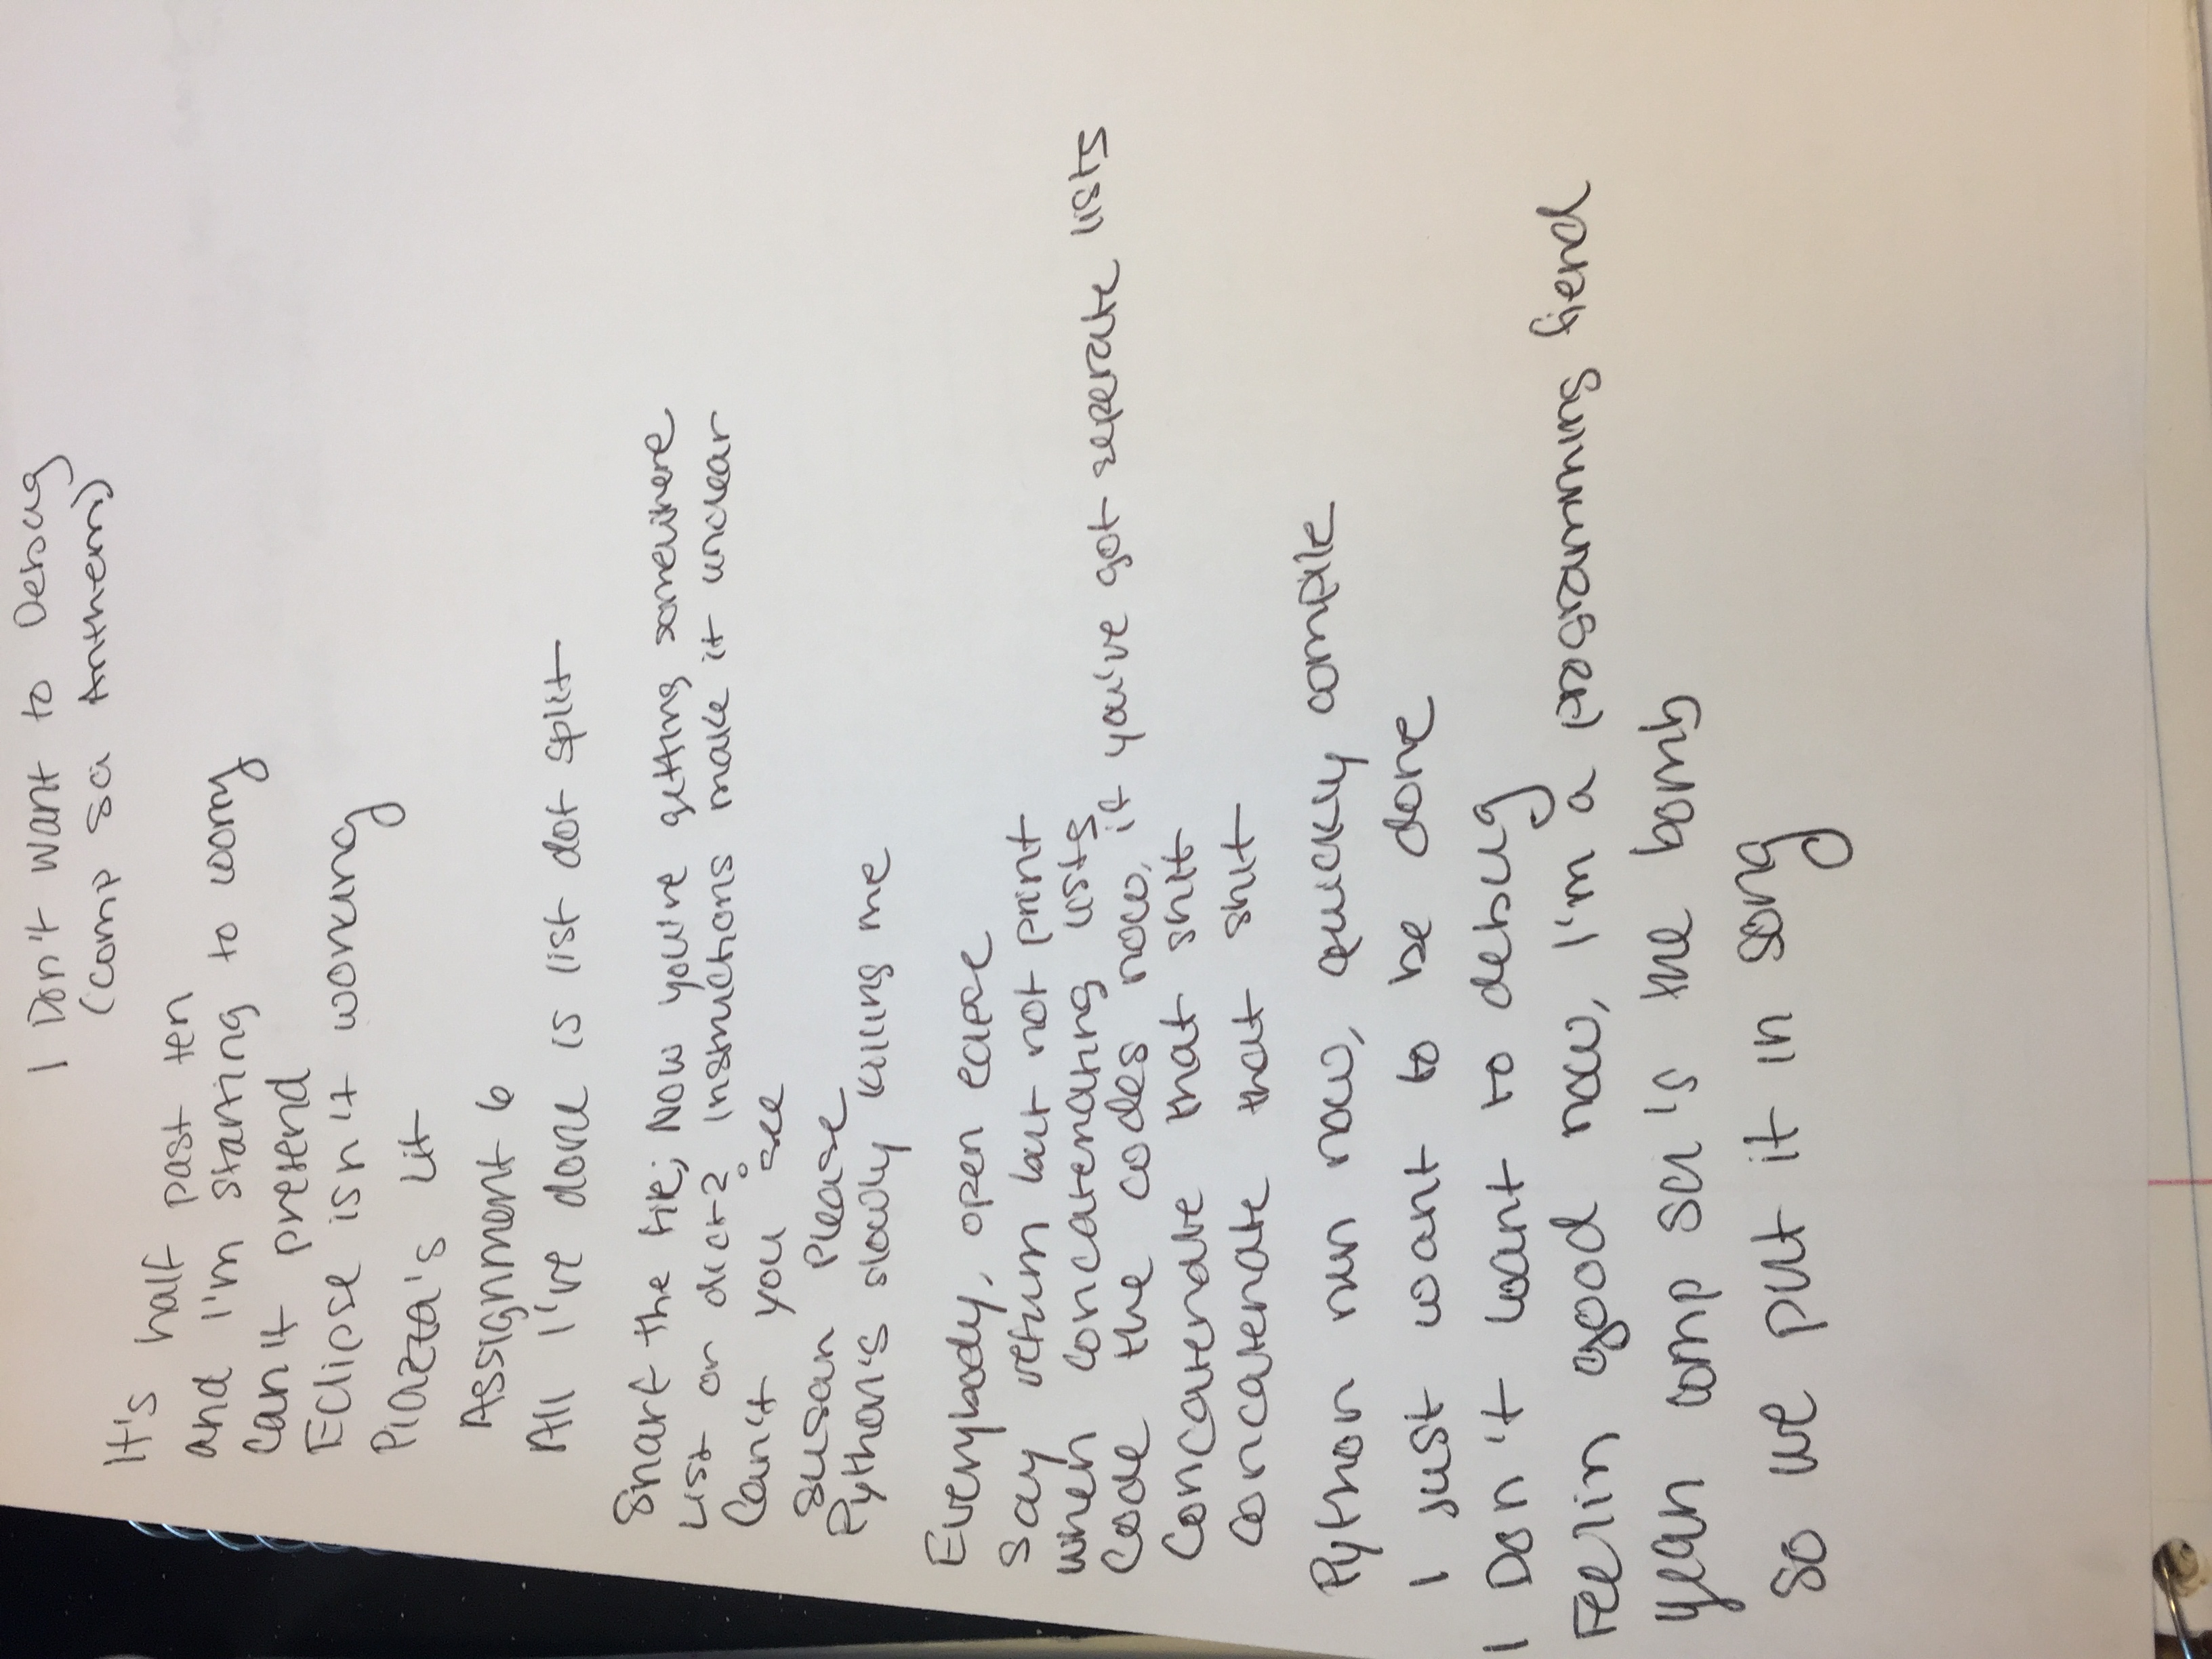 I Don't Want to Debug
(comp sci Anthem)
It's half past ten
and I'm starting to worry
Can't pretend
Eclipse isn't working
Piazza's lit
Assignment 6
All I've done is list dot split
Snarf the file; Now you're getting somewhere
List or dict? Instructions make it unclear
Can't you see
Susan please
Python's slowly killing me
Everybody, open eclipse
Say return but not print
When concatenating lists
Code the codes now, if you've got seperate lists
Concatenate that shit
Concatenate that shit
Python run now, quickly compile
I just want to be done
I Don't want to debug
Feelin good now, I'm a programming fiend
Yeah comp sci's the bomb
So we put it in song